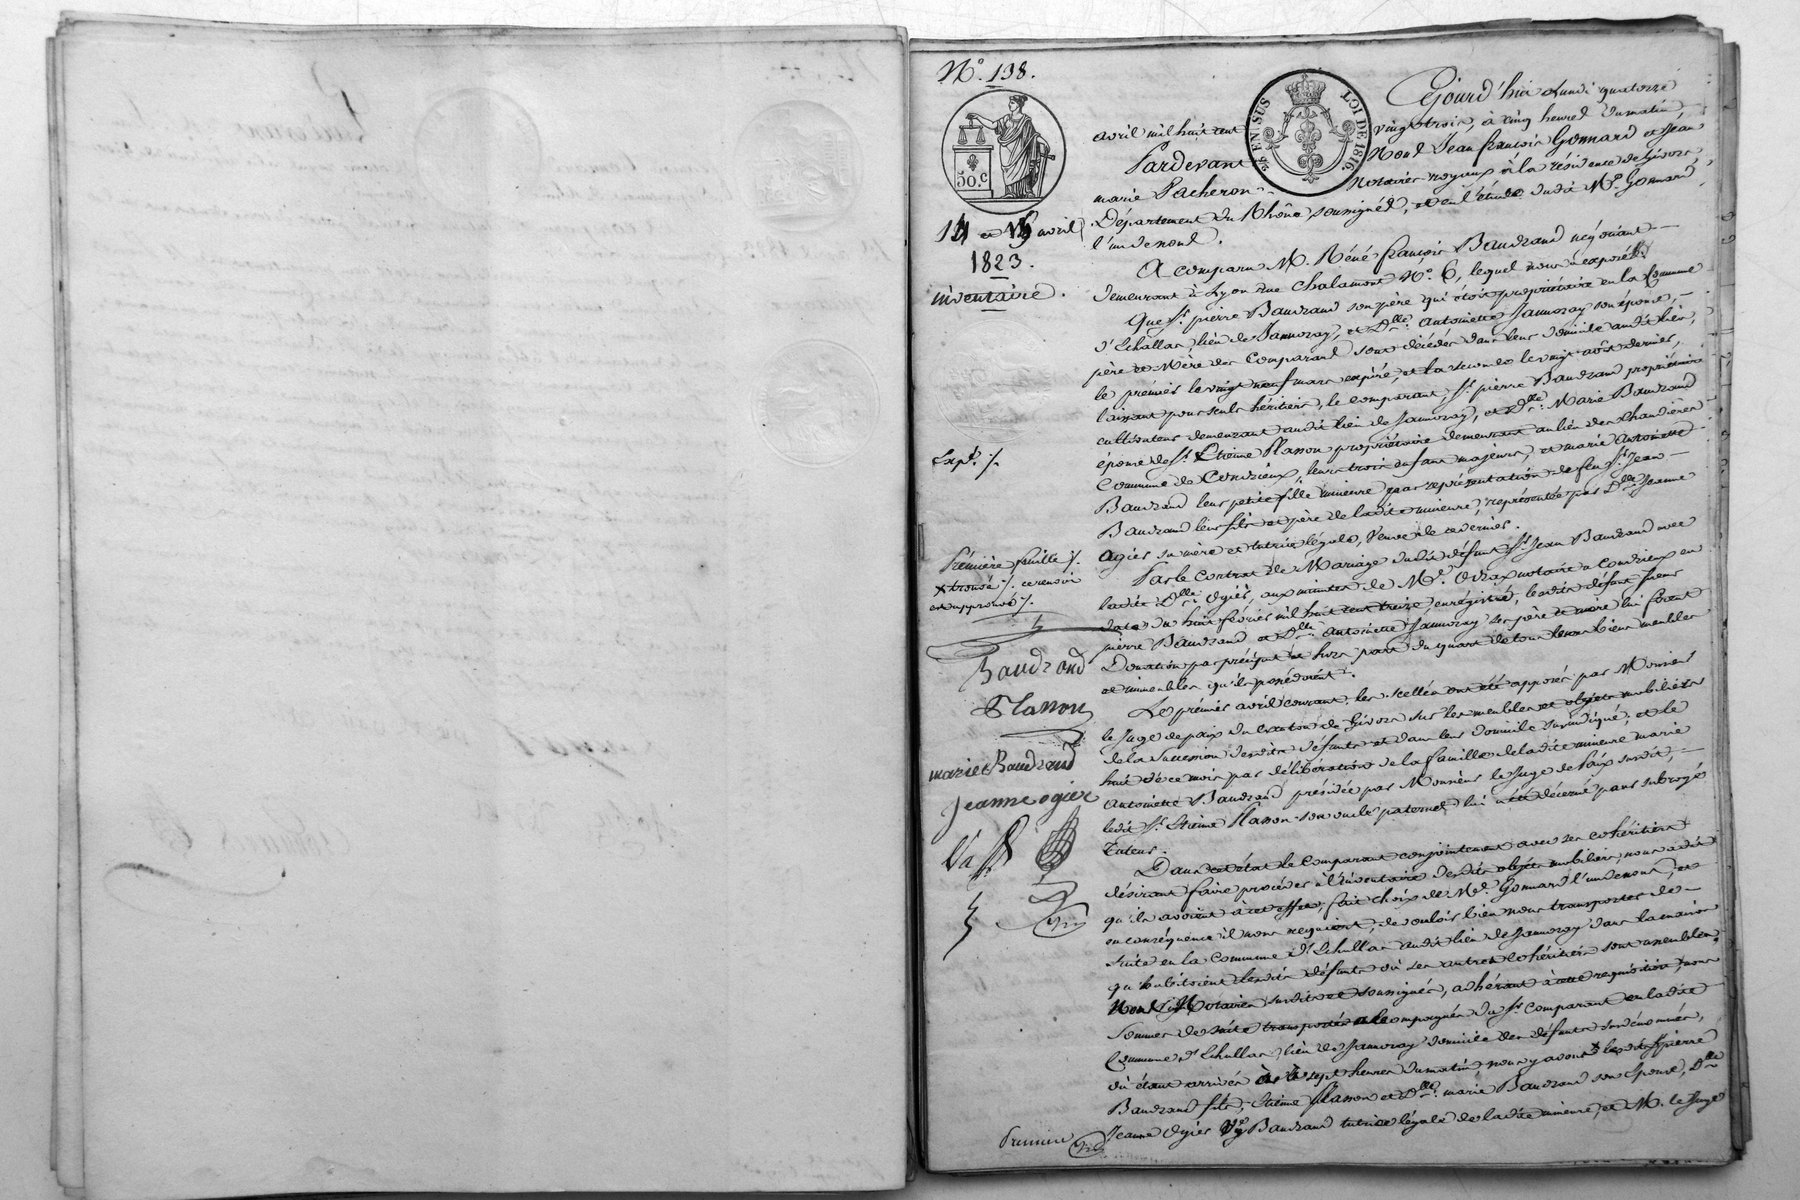 N.° 138.
50.c
2/5 EN SUS
LOI DE 1816.
14 et 15 avril
1823.
inventaire.
Expé. /.
Première feuille /.
x trouvé /. ce renvoi
est approuvé /.
Baudrand
Planson
marie Baudrand
Jeanne ogier
Cejourd'hui Lundi quatorze
avril mil huit cent vingt trois, à cinq heures du matin,
Pardevant Nous Jean françois Gonnard et Jean
marie Pacheron Notaires royaux à la résidence de Givors,
Département du Rhône soussignés, et en l'étude dudit M.e Gonnard
l'un de nous.
A comparu M. Réné françois Baudrand négociant
demeurant à Lyon rue Chalamont N.° 6, lequel nous a exposé
Que S.r pierre Baudrand son père qui étoit propriétaire en la Commune
d'Echallas lieu de Jamoray, et D.lle Antoinette Jamoray son épouse,
père et Mère du Comparant sont décédés dans leur domicile audit lieu,
le premier le vingt neuf mars expiré, et la seconde le vingt août dernier,
laissant pour seuls héritiers, le comparant, S.r pierre Baudrand propriétaire
cultivateur demeurant audit lieu de Jamoray, et D.lle Marie Baudrand
épouse de S.r Etienne Planson propriétaire demeurant au lieu des chaudières
Commune de Condrieux, leurs trois enfans majeurs, et marie Antoinette
Baudrand leur petite fille mineure par représentation de feu S.r Jean
Baudrand leur fils et père de ladite mineure, représentée par D.lle Jeanne
Ogier sa mère et tutrice légale, Veuve de ce dernier.
Par le contrat de Mariage dudit défunt S.r Jean Baudrand avec
ladite D.lle Ogier, aux minutes de M.e notaire a Condrieux en
date du huit février mil huit cent treize, enregistré, lesdits défunt sieur
pierre Baudrand et D.lle Antoinette Jamoray ses père et mère lui firent
Donation par préciput et hors part du quart de tous leurs biens meubles
et immeubles qu'ils possédoient.
Le premier avril courant, les scellés ont été apposés par Monsieur
le Juge de paix du canton de Givors sur les meubles et objets mobiliers
de la succession desdits défunts et dans leur domicile susindiqué; et le
huit de ce mois par délibération de la famille de ladite mineure marie
Antoinette Baudrand présidée par Monsieur le Juge de Paix susdit,
ledit S.r Etienne Planson son oncle paternel lui a été décerné pour subrogé
Tuteur.
Dans cet état le Comparant conjointement avec ses cohéritiers
désirant faire procéder à l'inventaire desdits objets mobiliers, nous a dit
qu'ils avoient à cet effet, fait choix de M.e Gonnard l'un de nous, et
en conséquence il nous requiert, de vouloir bien nous transporter de
suite en la Commune d'Echallas audit lieu de Jamoray dans la maison
qu'habitoient lesdits défunts où ses autres cohéritiers sont assemblés,
Nous Notaires susdits et soussignés, adhérant à cette requisition nous
sommes de suite transportés accompagnés du S.r Comparant en ladite
Commune d'Echallas lieu de Jamoray domicile des défunts susdénommés,
où étant arrivés à sept heures du matin nous y avons x lesdits S.rs pierre
Baudrand fils, Etienne Planson et D.lle marie Baudrand son Epouse, D.lle
Jeanne Ogier V.e Baudrand tutrice légale de ladite mineure, et M. le Juge
Premier